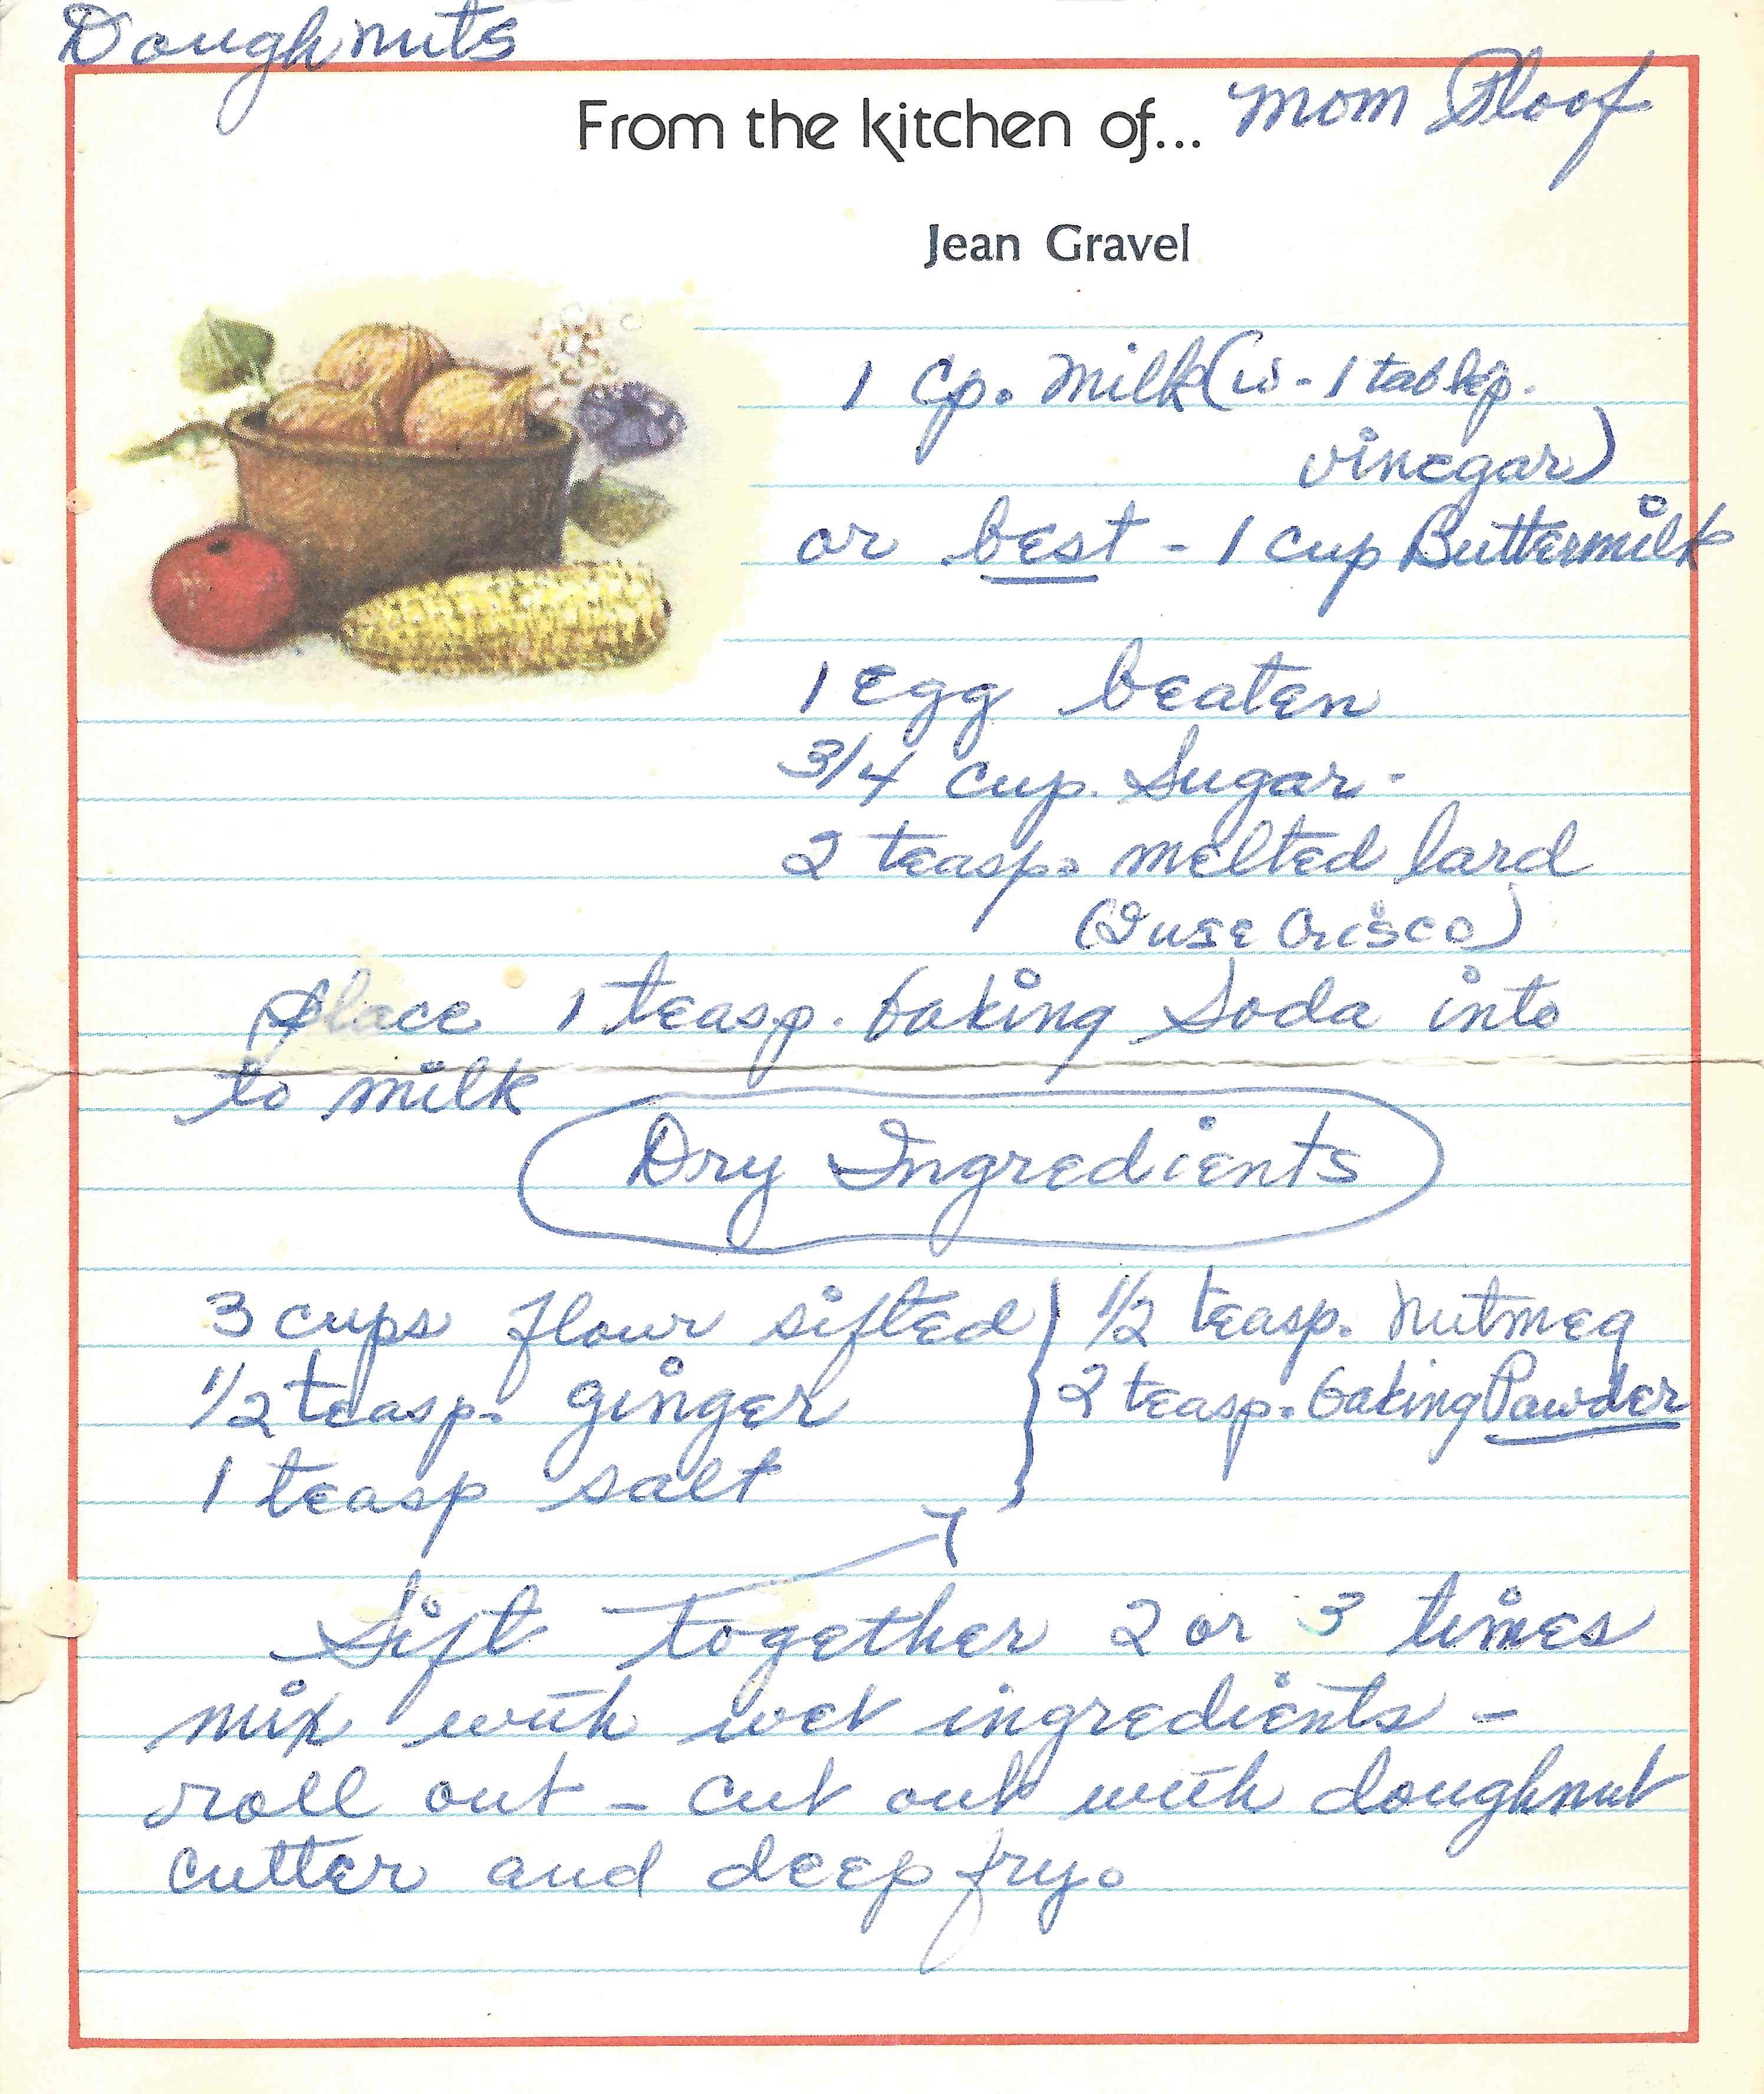 Doughnuts
From the kitchen of... Mom Ploof
Jean Gravel
1 Cp. Milk (w - 1 tablsp.
vinegar)
or best - 1 cup Buttermilk
1 egg beaten
3/4 cup. Sugar -
2 teasp. melted lard
(I use Crisco)
place 1 teasp. baking Soda into
to milk
Dry Ingredients
3 cups flour sifted } 1/2 teasp. Nutmeg
1/2 teasp. ginger } 2 teasp. baking Powder
1 teasp salt
Sift together 2 or 3 times
mix with wet ingredients -
roll out - cut out with doughnut
cutter and deep fry.